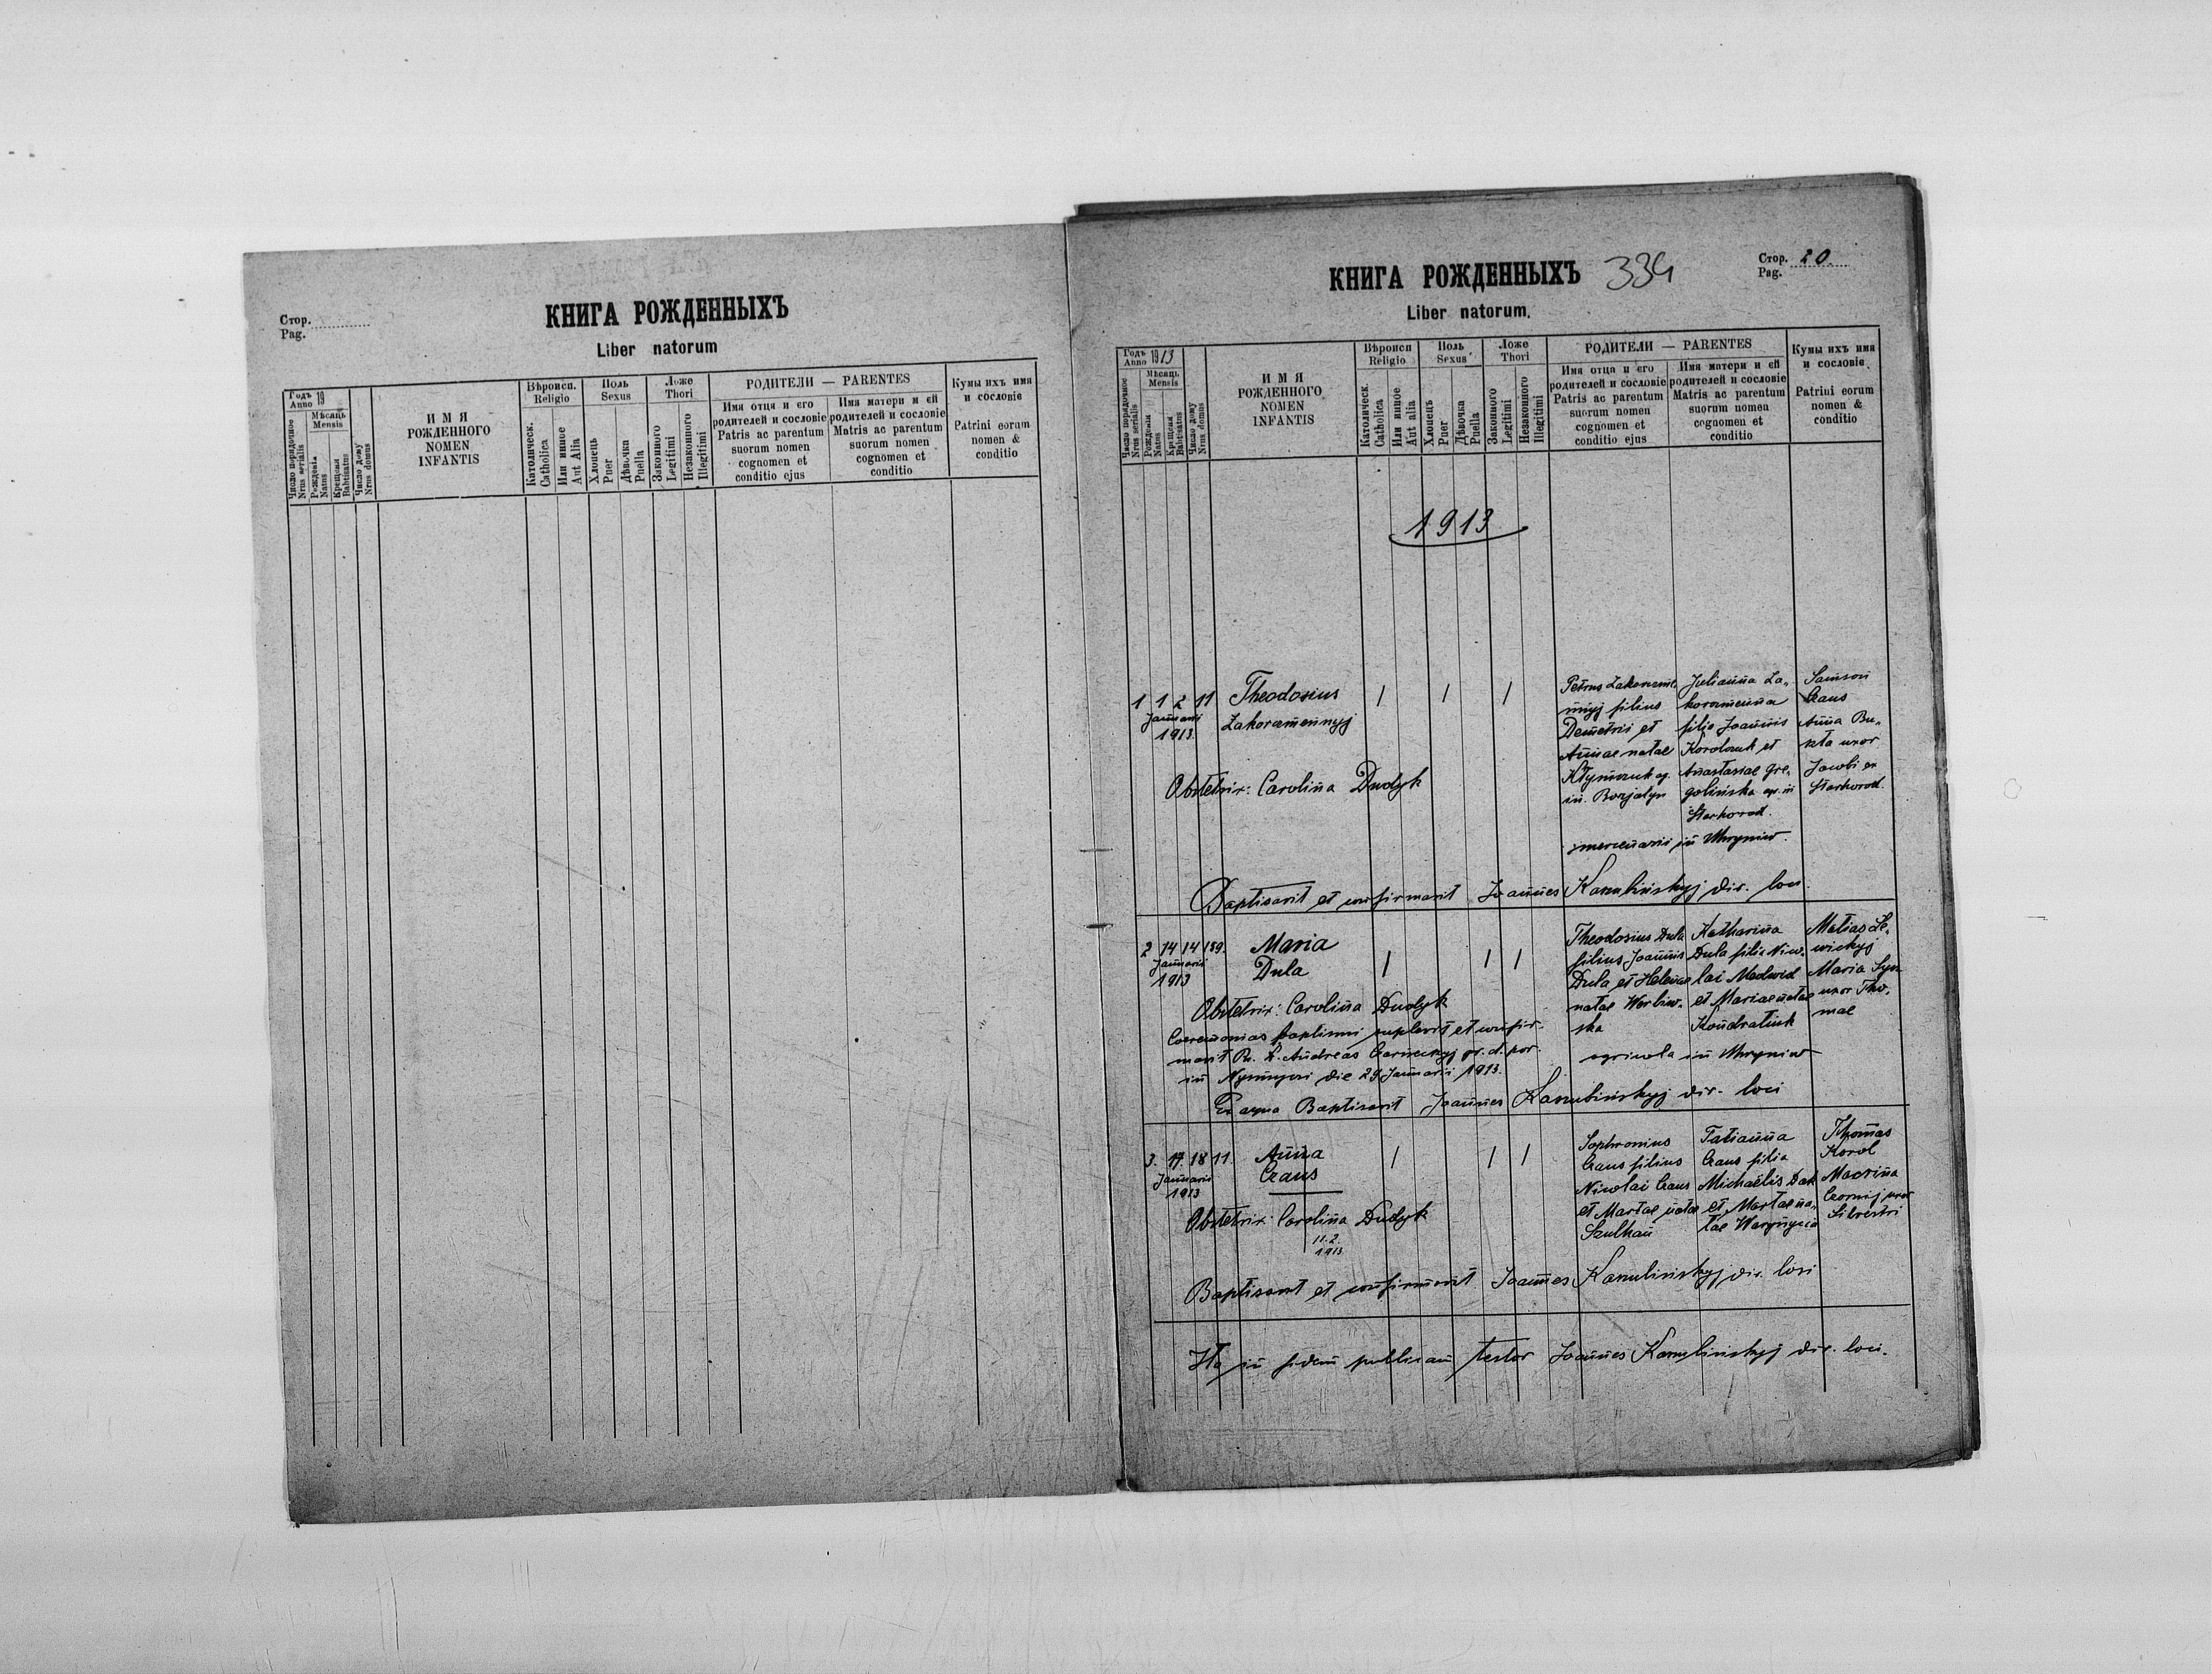 КНИГА РОЖДЕННЫХЪ
Liber natorum
Стор.
Pag.
Годъ 19
Anno
Мѣсяць
Mensis
Число порядочное
Nrus serialis
Рожденія
Natus
Крещенія
Babtisatus
Число дому
Nrus domus
И М Я
РОЖДЕННОГО
NOMEN
INFANTIS
Вѣроисп.
Religio
Католическ.
Catholica
Или инное
Aut Alia
Поль
Sexus
Хлопець
Puer
Дѣвочка
Puella
Ложе
Thori
Законного
Legitimi
Незаконного
Illegitimi
РОДИТЕЛИ — PARENTES
Имя отця и его
родителей и сословіе
Patris ac parentum
suorum nomen
cognomen et
conditio ejus
Имя матери и ей
родителей и сословіе
Matris ac parentum
suorum nomen
cognomen et
conditio
Кумы ихъ имя
и сословіе
Patrini eorum
nomen &
conditio
КНИГА РОЖДЕННЫХЪ 334
Liber natorum.
Стор. 20.
Pag.
Годъ 1913
Anno
Мѣсяць
Mensis
Число порядочное
Nrus serialis
Рожденія
Natus
Крещенія
Babtisatus
Число дому
Nrus domus
И М Я
РОЖДЕННОГО
NOMEN
INFANTIS
Вѣроисп
Religio
Католическ.
Catholica
Или инное
Aut alia
Поль
Sexus
Хлопець
Puer
Дѣвочка
Puella
Ложе
Thori
Законного
Legitimi
Незаконного
Illegitimi
РОДИТЕЛИ — PARENTES
Имя отца и его
родителей и сословіе
Patris ac parentum
suorum nomen
cognomen et
conditio ejus
Имя матери и ей
родителей и сословіе
Matris ac parentum
suorum nomen
cognomen et
conditio
Кумы ихъ имя
и сословіе
Patrini eorum
nomen &
conditio
1913
1 1 2 11
Januarii
1913
Theodosius
Zakoramennyj
/ / /
Petrus Zakorame-
nnyj filius
Demetrii et
Annae natae
Klymczuk ag.
in
Julianna Za-
koramenna
filia Joannis
et
Anastasiae Gre-
golinska agr. in
Starhorod.
mercenarii in Uhryniw.
Samson
Craus
Anna Bu-
uxor
Jacobi ex
Starhorod.
Obstetrix: Carolina Dudyk
Baptisavit et confirmavit Joannes Kanulinskyj dir. loci.
2 14 14 189.
Januarii
1913
Maria
Dula
/ / /
Theodosius Dula
filius Joannis
Dula et Helenae
natae Werbiw-
ska
Katharina
Dula filia Nico-
lai Medwid
et Mariae natae
Kondratiuk
agricola in Uhryniw
Matias Le-
wickyj
Maria Syn
uxor Tho-
mae
Obstetrix: Carolina Dudyk
Coeremonias baptismi suplevit et confir-
mavit R. D. Andreas gr. c. par.
in die 29 Januarii 1913.
Ex aqua Baptisavit Joannes Kanulinskyj dir. loci
3. 17. 18 11.
Januarii
1913
Anna
Craus
/ / /
Sophronius
Craus filius
Nicolai Craus
et Martae natae
Szulhan
Tatianna
Craus filia
Michaëlis Dak
et Martae na-
tae
Thomas
Korol
Macrina
Czornij uxor
Silvestri
Obstetrix: Carolina Dudyk
11.2.
1913
Baptisavit et confirmavit Joannes Kanulinskyj dir. loci
Ita in fidem publicam testor Joannes Kanulinskyj dir. loci.